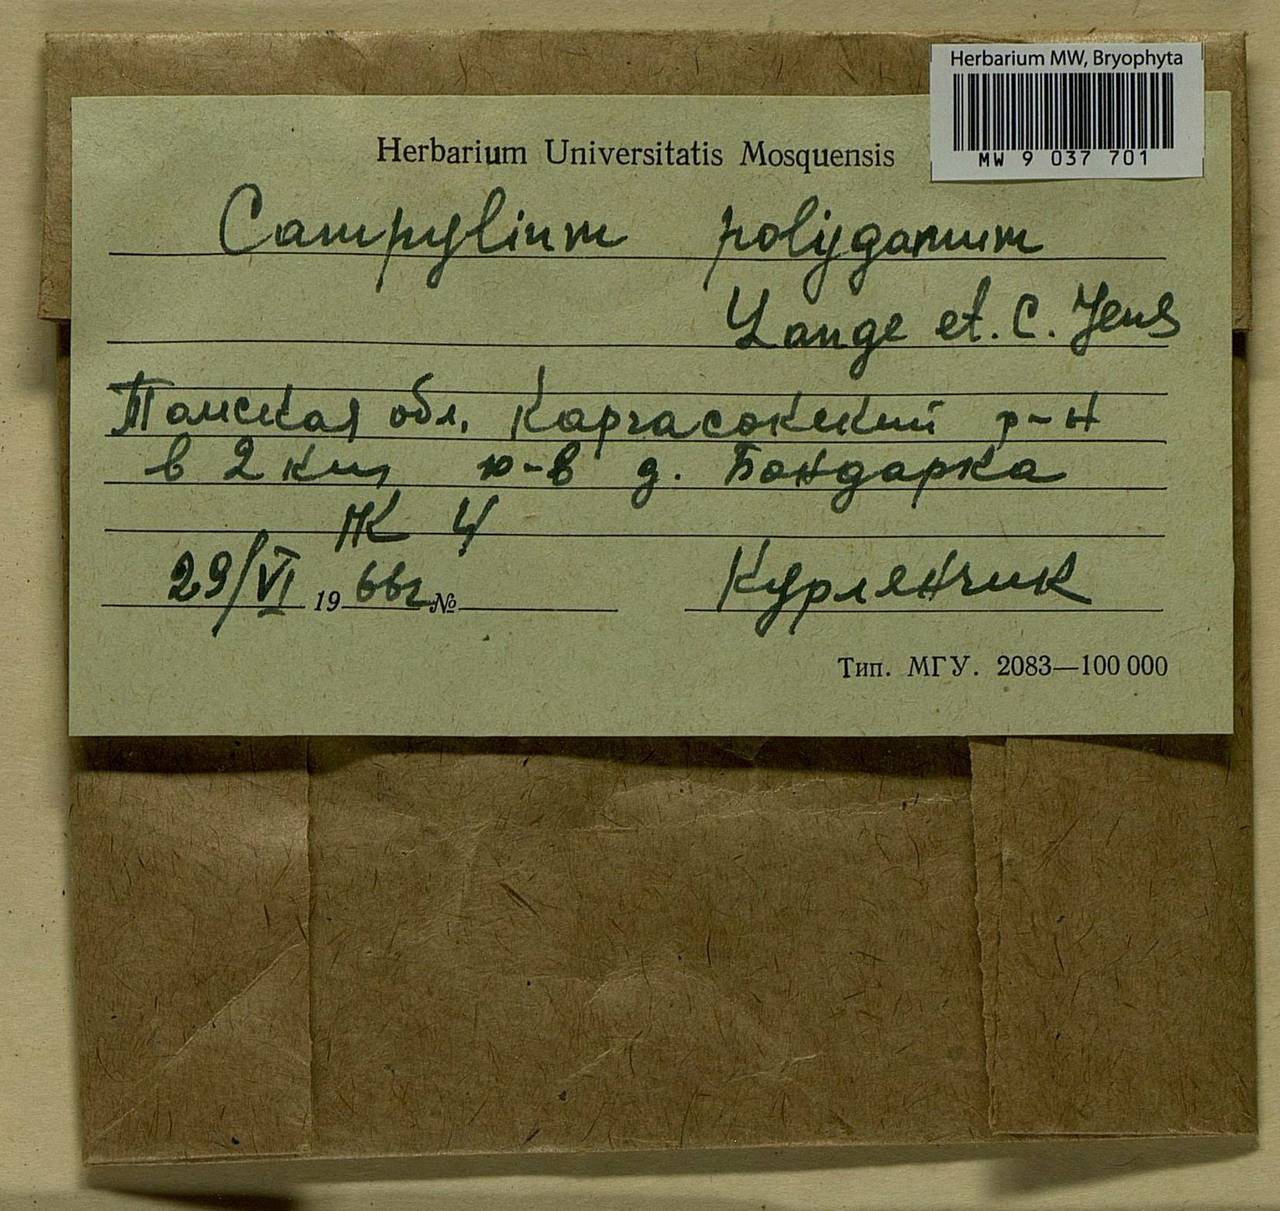 Herbarium MW, Bryophyta
MW 9 037 701
Herbarium Universitatis Mosquensis
Campylium polyganum
Lange et. C. Jens
Томская обл. Каргасокский р-н
в 2 км ю-в д. Бондарка
29/VI 1966г №
Курлянчик
Тип. МГУ. 2083—100 000